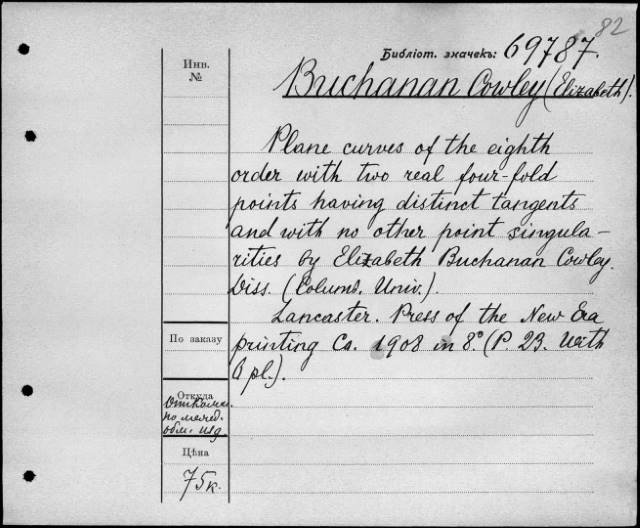 82
Библіот. значекъ: 69787.
Инв.
№
Buchanan Cowley (Elizabeth).
Plane curves of the eighth
order with two real four-fold
points having distinct tangents
and with no other point singula-
rities by Elizabeth Buchanan Cowley.
Diss. (Columb. Univ.).
Lancaster. Press of the New Era
printing Co. 1908 in 8° (P. 23. With
pl.).
По заказу
Откуда
по межд.
обм. изд
Цѣна
75 к.